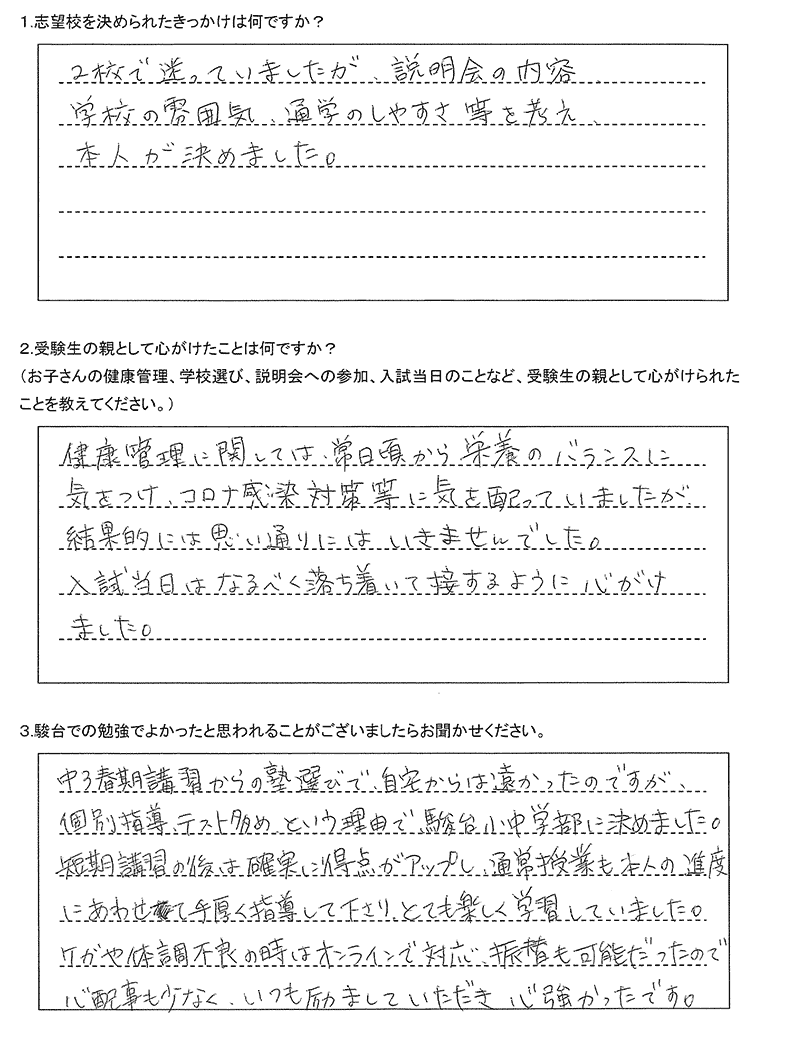 1.志望校を決められたきっかけは何ですか？
2校で迷っていましたが、説明会の内容、
学校の雰囲気、通学のしやすさ等を考え、
本人が決めました。
2.受験生の親として心がけたことは何ですか？
（お子さんの健康管理、学校選び、説明会への参加、入試当日のことなど、受験生の親として心がけられた
ことを教えてください。）
健康管理に関しては、常日頃から栄養のバランスに
気をつけ、コロナ感染対策等に気を配っていましたが
結果的には思い通りにはいきませんでした。
入試当日はなるべく落ち着いて接するように心がけ
ました。
3.駿台での勉強でよかったと思われることがございましたらお聞かせください。
中3春期講習からの塾選びで、自宅からは遠かったのですが、
個別指導、テスト多め、という理由で駿台小中学部に決めました。
短期講習の後は確実に得点がアップし、通常授業も本人の進度
にあわせて手厚く指導して下さり、とても楽しく学習していました。
ケガや体調不良の時はオンラインで対応、振替も可能だったので
心配事も少なく、いつも励ましていただき心強かったです。